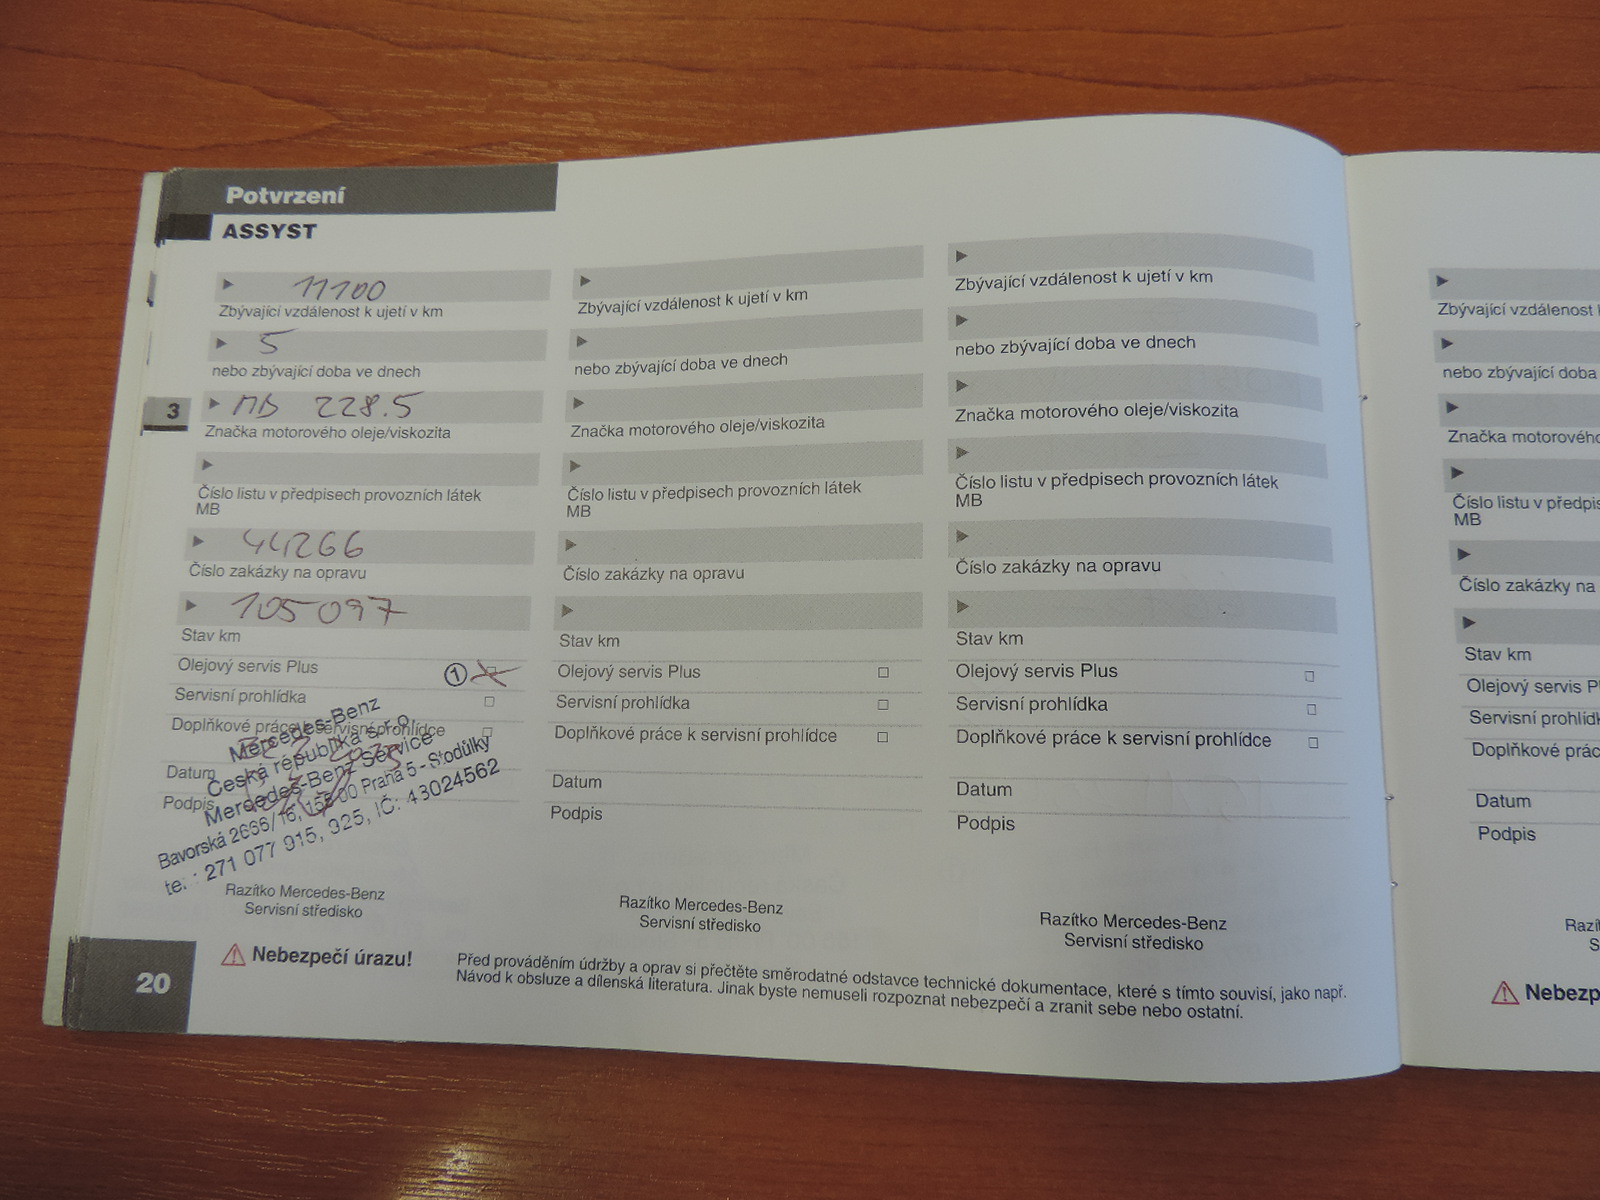 Potvrzení
ASSYST
11100
Zbývající vzdálenost k ujetí v km
5
nebo zbývající doba ve dnech
3
MB 228.5
Značka motorového oleje/viskozita
Číslo listu v předpisech provozních látek
MB
44266
Číslo zakázky na opravu
105097
Stav km
Olejový servis Plus
1
Servisní prohlídka
Doplňkové práce k servisní prohlídce
Datum
Podpis
Mercedes-Benz
Česká republika s.r.o.
Mercedes-Benz Service
Bavorská 2666/16, 155 00 Praha 5 - Stodůlky
tel. : 271 077 915, 925, IČ: 43024562
Razítko Mercedes-Benz
Servisní středisko
Zbývající vzdálenost k ujetí v km
nebo zbývající doba ve dnech
Značka motorového oleje/viskozita
Číslo listu v předpisech provozních látek
MB
Číslo zakázky na opravu
Stav km
Olejový servis Plus
Servisní prohlídka
Doplňkové práce k servisní prohlídce
Datum
Podpis
Razítko Mercedes-Benz
Servisní středisko
Zbývající vzdálenost k ujetí v km
nebo zbývající doba ve dnech
Značka motorového oleje/viskozita
Číslo listu v předpisech provozních látek
MB
Číslo zakázky na opravu
Stav km
Olejový servis Plus
Servisní prohlídka
Doplňkové práce k servisní prohlídce
Datum
Podpis
Razítko Mercedes-Benz
Servisní středisko
20
Nebezpečí úrazu!
Před prováděním údržby a oprav si přečtěte směrodatné odstavce technické dokumentace, které s tímto souvisí, jako např.
Návod k obsluze a dílenská literatura. Jinak byste nemuseli rozpoznat nebezpečí a zranit sebe nebo ostatní.
Zbývající vzdálenost
nebo zbývající doba
Značka motorového
Číslo listu v předpis
MB
Číslo zakázky na
Stav km
Olejový servis P
Servisní prohlíd
Doplňkové prác
Datum
Podpis
Razí
S
Nebezp